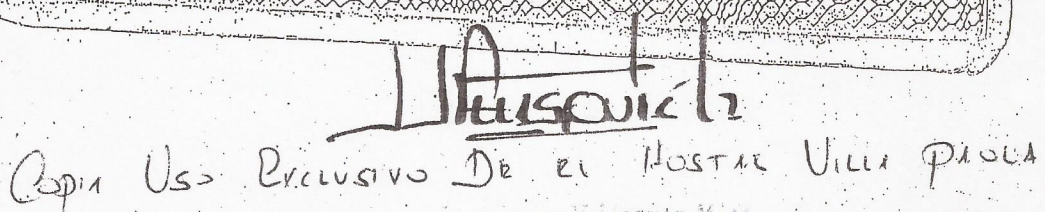 Copia Uso Exclusivo De el Hostal Villa Paola